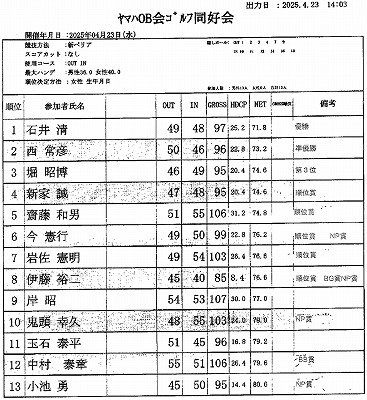 出力日 : 2025.4.23 14:03
ﾔﾏﾊOB会ｺﾞﾙﾌ同好会
開催年月日 : 2025年04月23日(水)
競技方法 : 新ペリア
スコアカット : なし
使用コース : OUT IN
最大ハンデ : 男性36.0 女性40.0
順位決定方法 : 女性 生年月日
順位 参加者氏名 OUT IN GROSS HDCP NET 備考
1 石井 清 49 48 97 25.2 71.8 優勝
2 西 常彦 50 46 96 22.8 73.2 準優勝
3 堀 昭博 46 49 95 20.4 74.6 第3位
4 新家 誠 47 48 95 20.4 74.6 順位賞
5 齋藤 和男 51 55 106 31.2 74.8 順位賞
6 今 憲行 49 50 99 22.8 76.2 順位賞 NP賞
7 岩佐 憲明 49 54 103 26.4 76.6 順位賞
8 伊藤 裕二 45 40 85 8.4 76.6 順位賞 BG賞NP賞
9 岸 昭 54 53 107 30.0 77.0
10 鬼頭 幸久 48 55 103 24.0 79.0 NP賞
11 玉石 泰平 51 45 96 16.8 79.2
12 中村 泰章 55 51 106 26.4 79.6 BB賞
13 小池 勇 45 50 95 14.4 80.6 NP賞